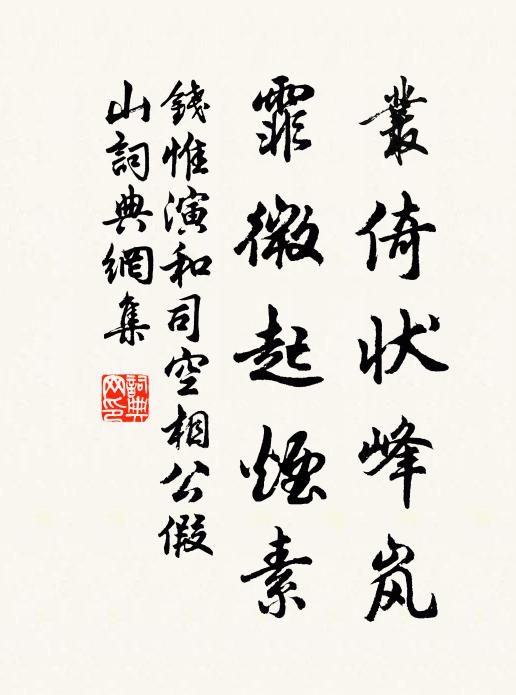 叢倚状峰岚
霏微起煙素
錢惟演和司空相公假
山詞典網集
詞典网印